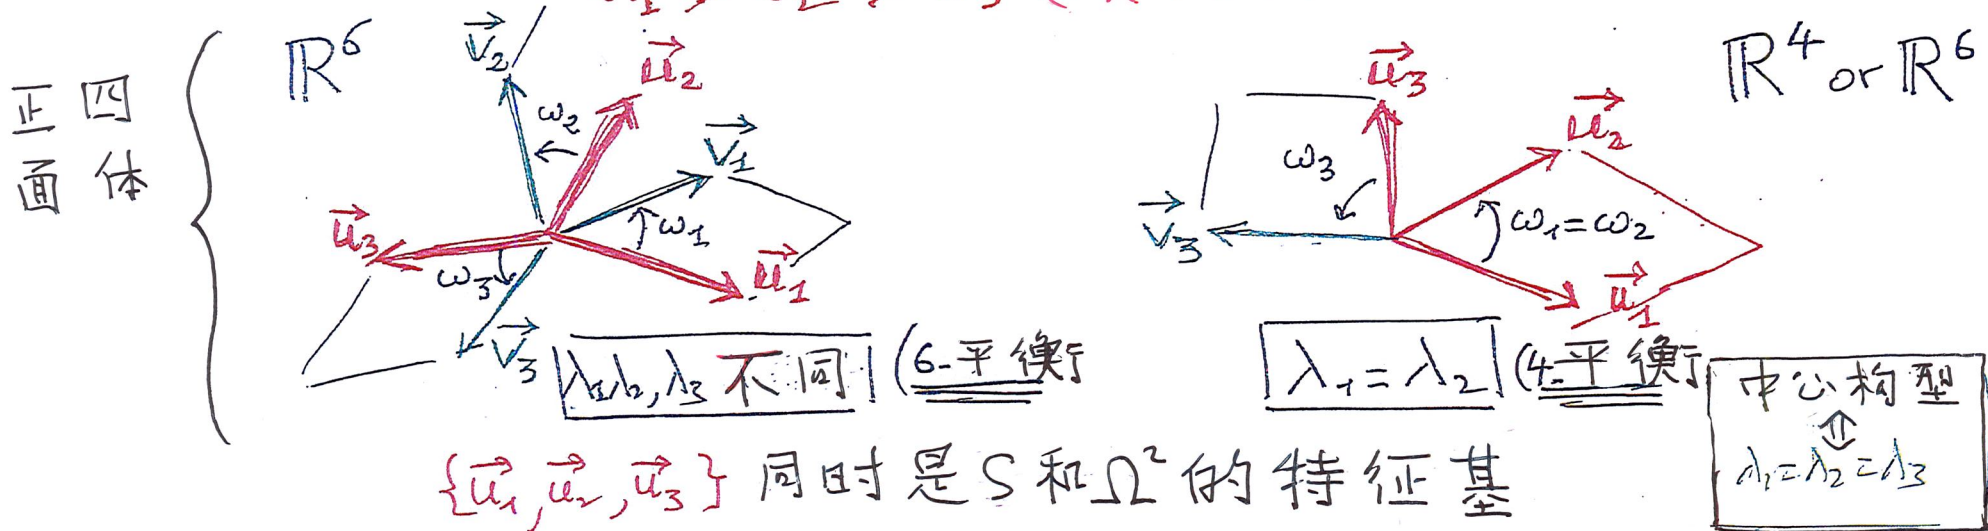 正四面体
ℝ⁶
v⃗₂
u⃗₂
ω₂
v⃗₁
u⃗₃
ω₁
ω₃
u⃗₁
v⃗₃
λ₁,λ₂,λ₃ 不同 (6-平衡
u⃗₃
ℝ⁴ or ℝ⁶
u⃗₂
ω₃
v⃗₃
ω₁=ω₂
u⃗₁
λ₁=λ₂ (4-平衡
中心构型
⇕
λ₁=λ₂=λ₃
{u⃗₁,u⃗₂,u⃗₃} 同时是S和Ω²的特征基